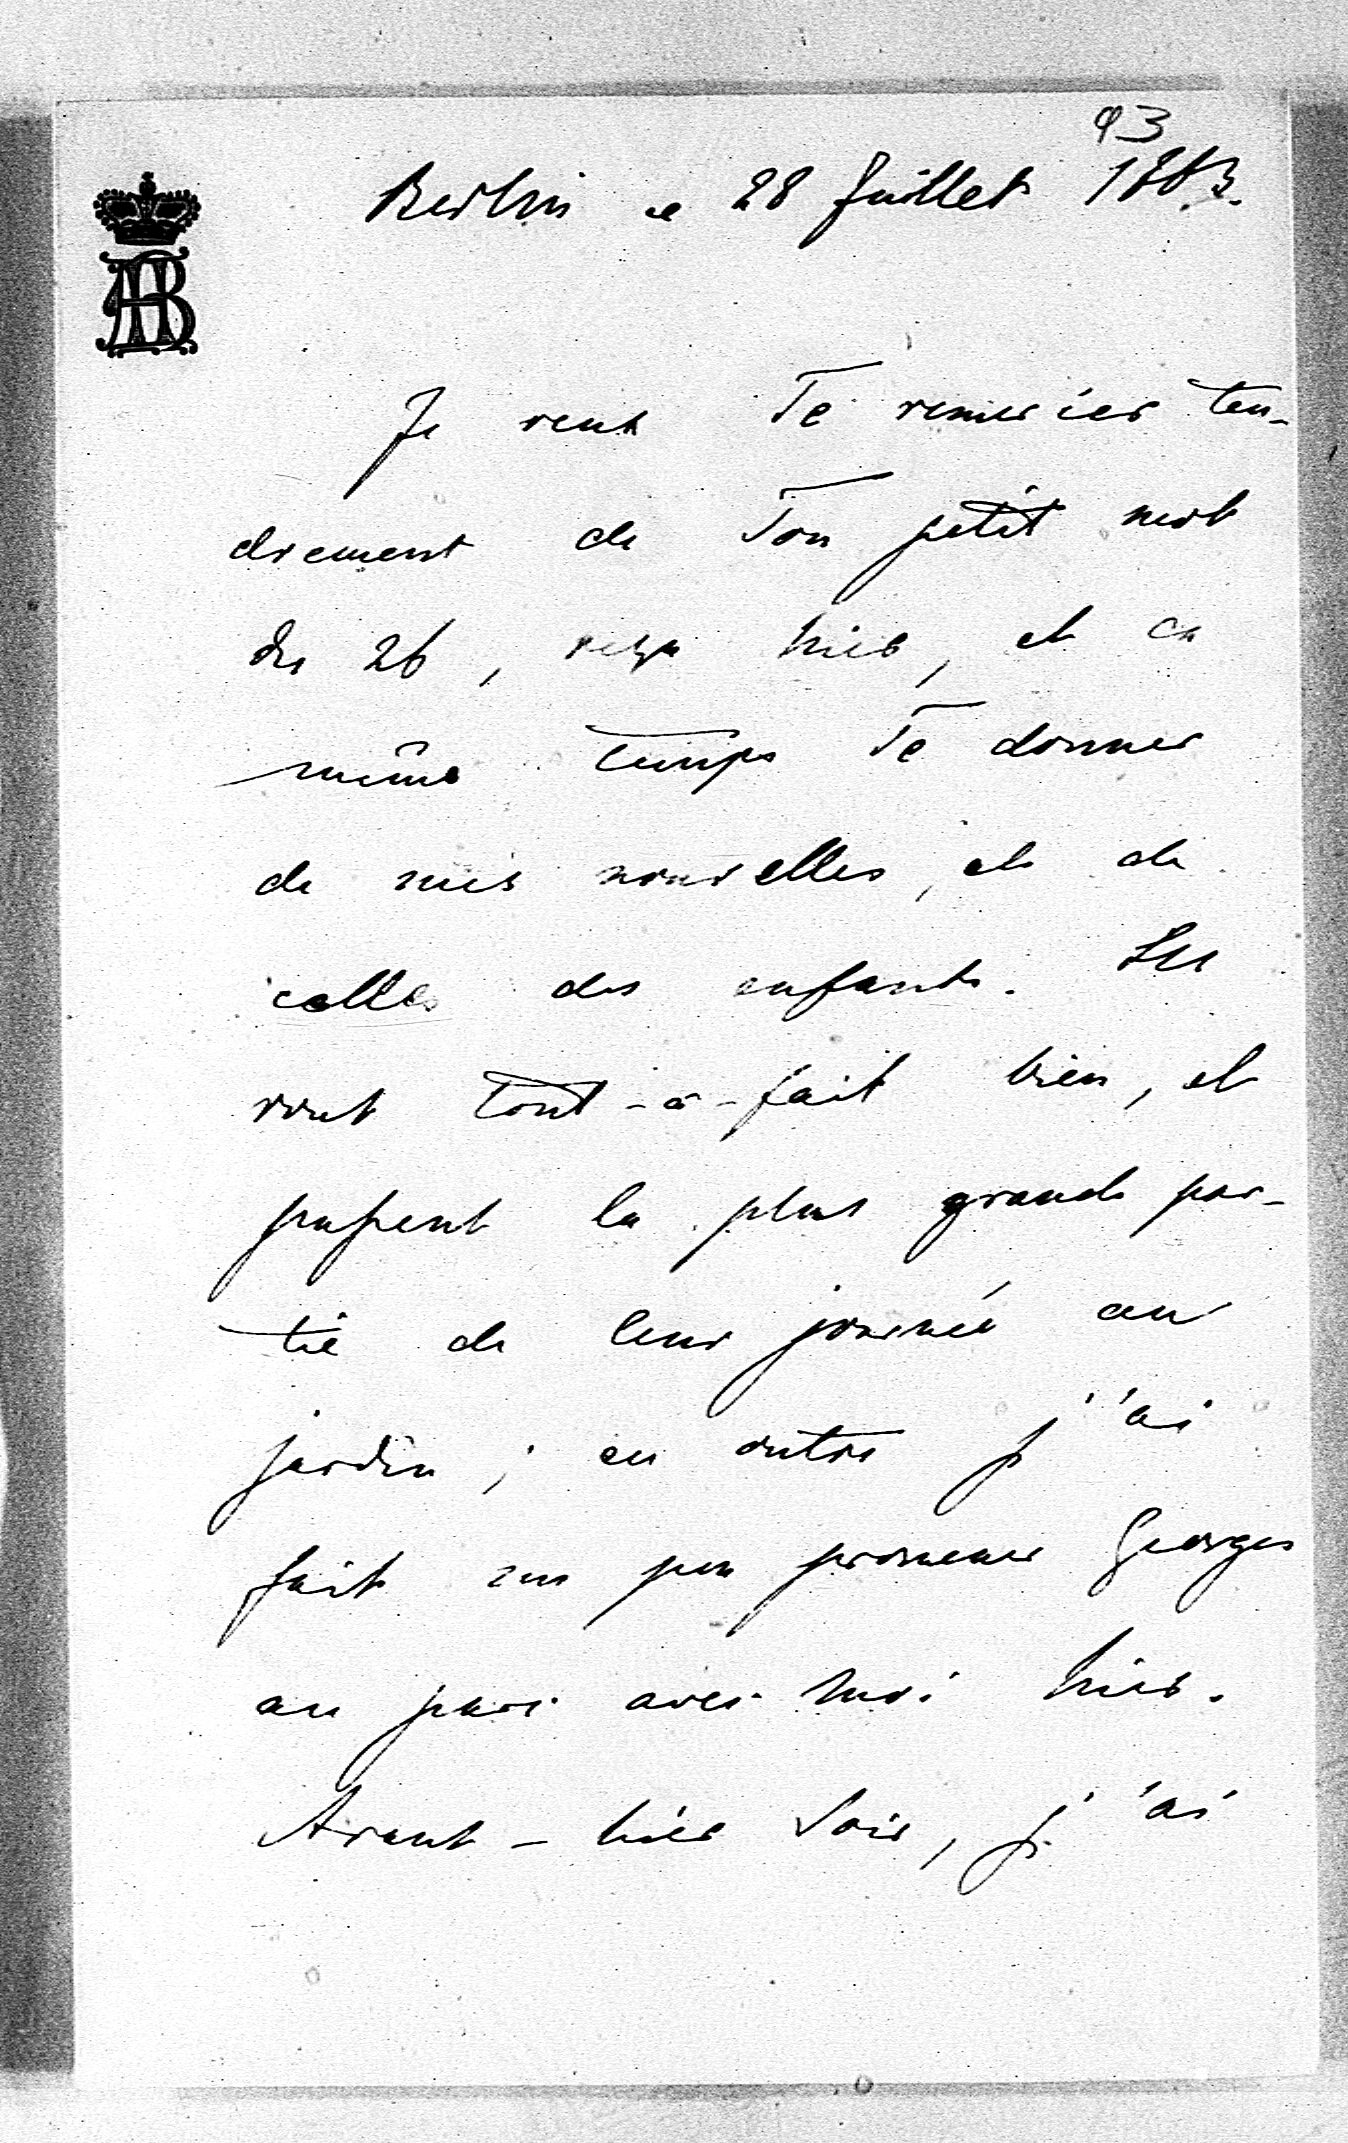 93
Berlin ce 28 Juillet 1883.
AB
Je veux Te remercier ten-
drement de Ton petit mot
du 26, reçu hier, et en
même temps Te donner
de mes nouvelles, et de
celles des enfants. Ils
vont tout-à-fait bien, et
passent la plus grande par-
tie de leur journée au
jardin; en outre j'ai
fait un peu promener Georges
au parc avec moi hier.
Avant-hier soir, j'ai